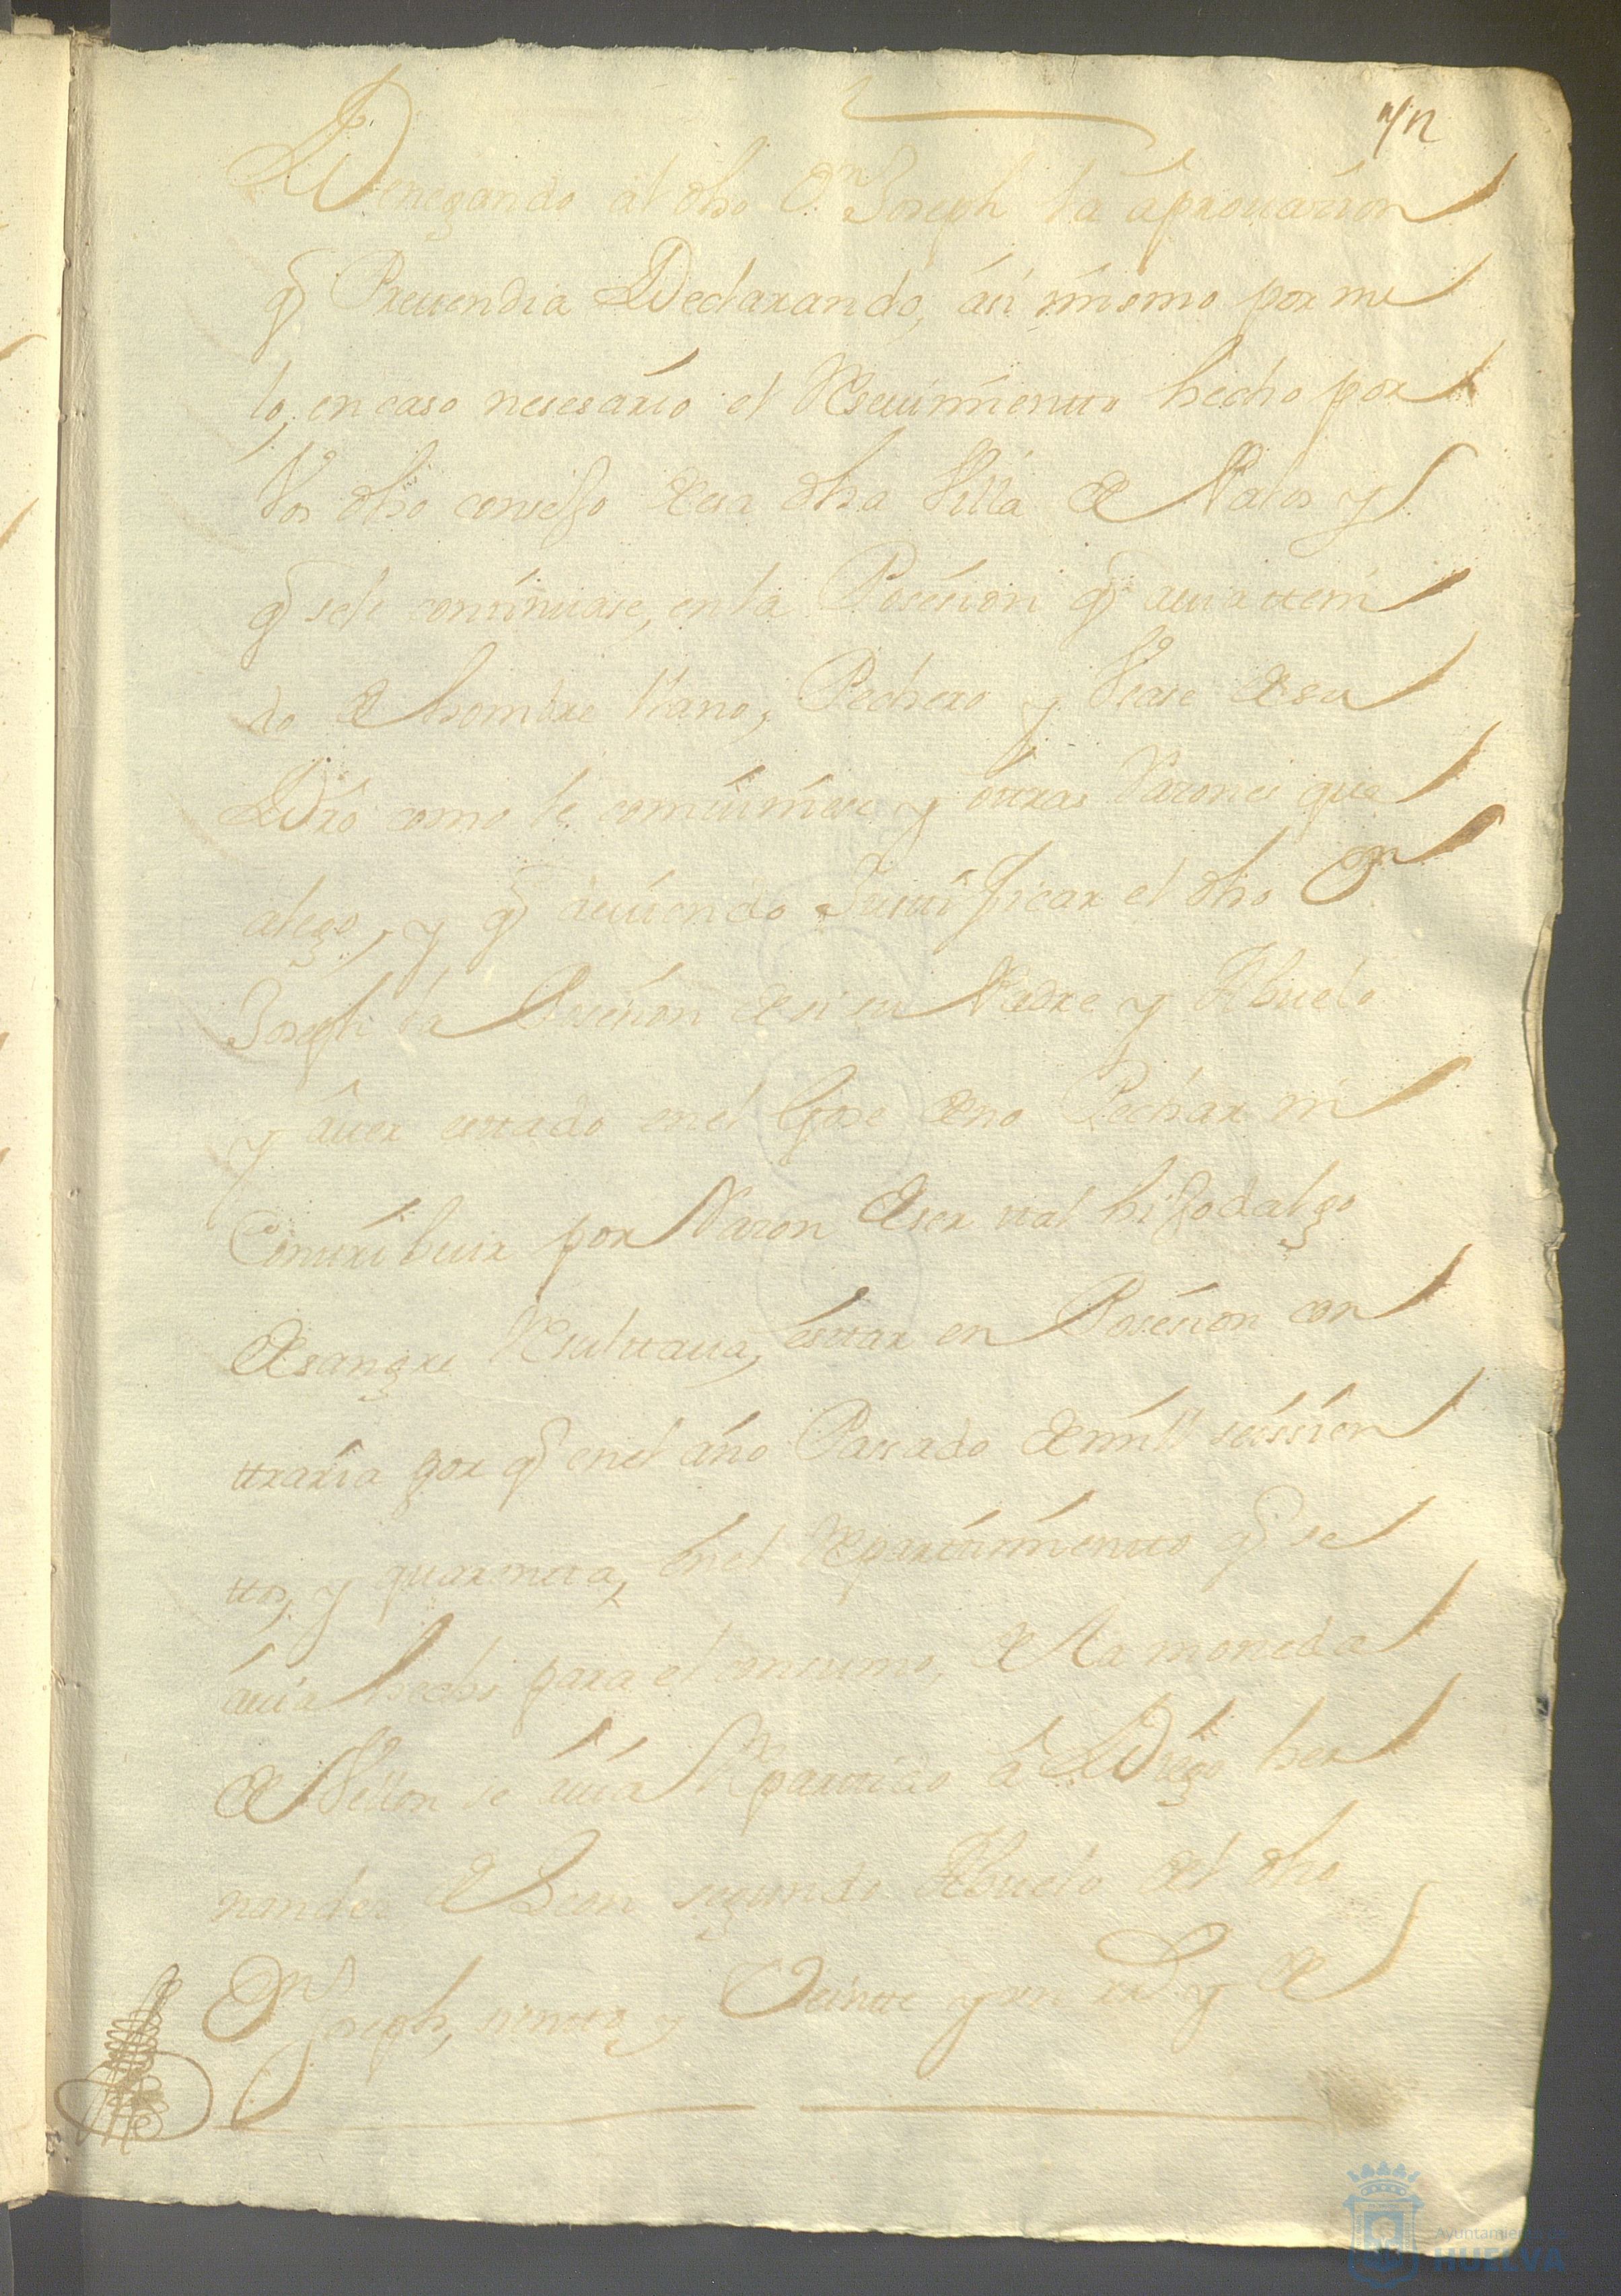 Denegando al dho Dn Joseph la aprouazion
q Pretendia Declarando, asi mismo por nu
lo, en caso nesesario el Reseuimiento hecho por
Vos dho consejo de esa dha Villa de Palos y
q se le continuase, en la Posesion q auia teni
do de hombre llano, Pechero y Vsase de su
Dro como le combiniese y otras Razones que
alego, y q deuiendo Justificar el dho Dn
Joseph la Posesion de si su Padre y Abuelo
y auer estado en el Gose de no Pechar ni
Contribuir por Razon de ser tal hijodalgo
de sangre Resultaua, estar en Posesion con
traria por q en el año Passado de mill seissien
tos, y quarenta, en el Repartimiento q se
auia hecho para el consumo, de la moneda
de Vellon se auia Repartido a Diego her
nandes de Leon segundo Abuelo del dho
Dn Joseph, siento y Veinte y un rs y de
Ayuntamiento de
HUELVA